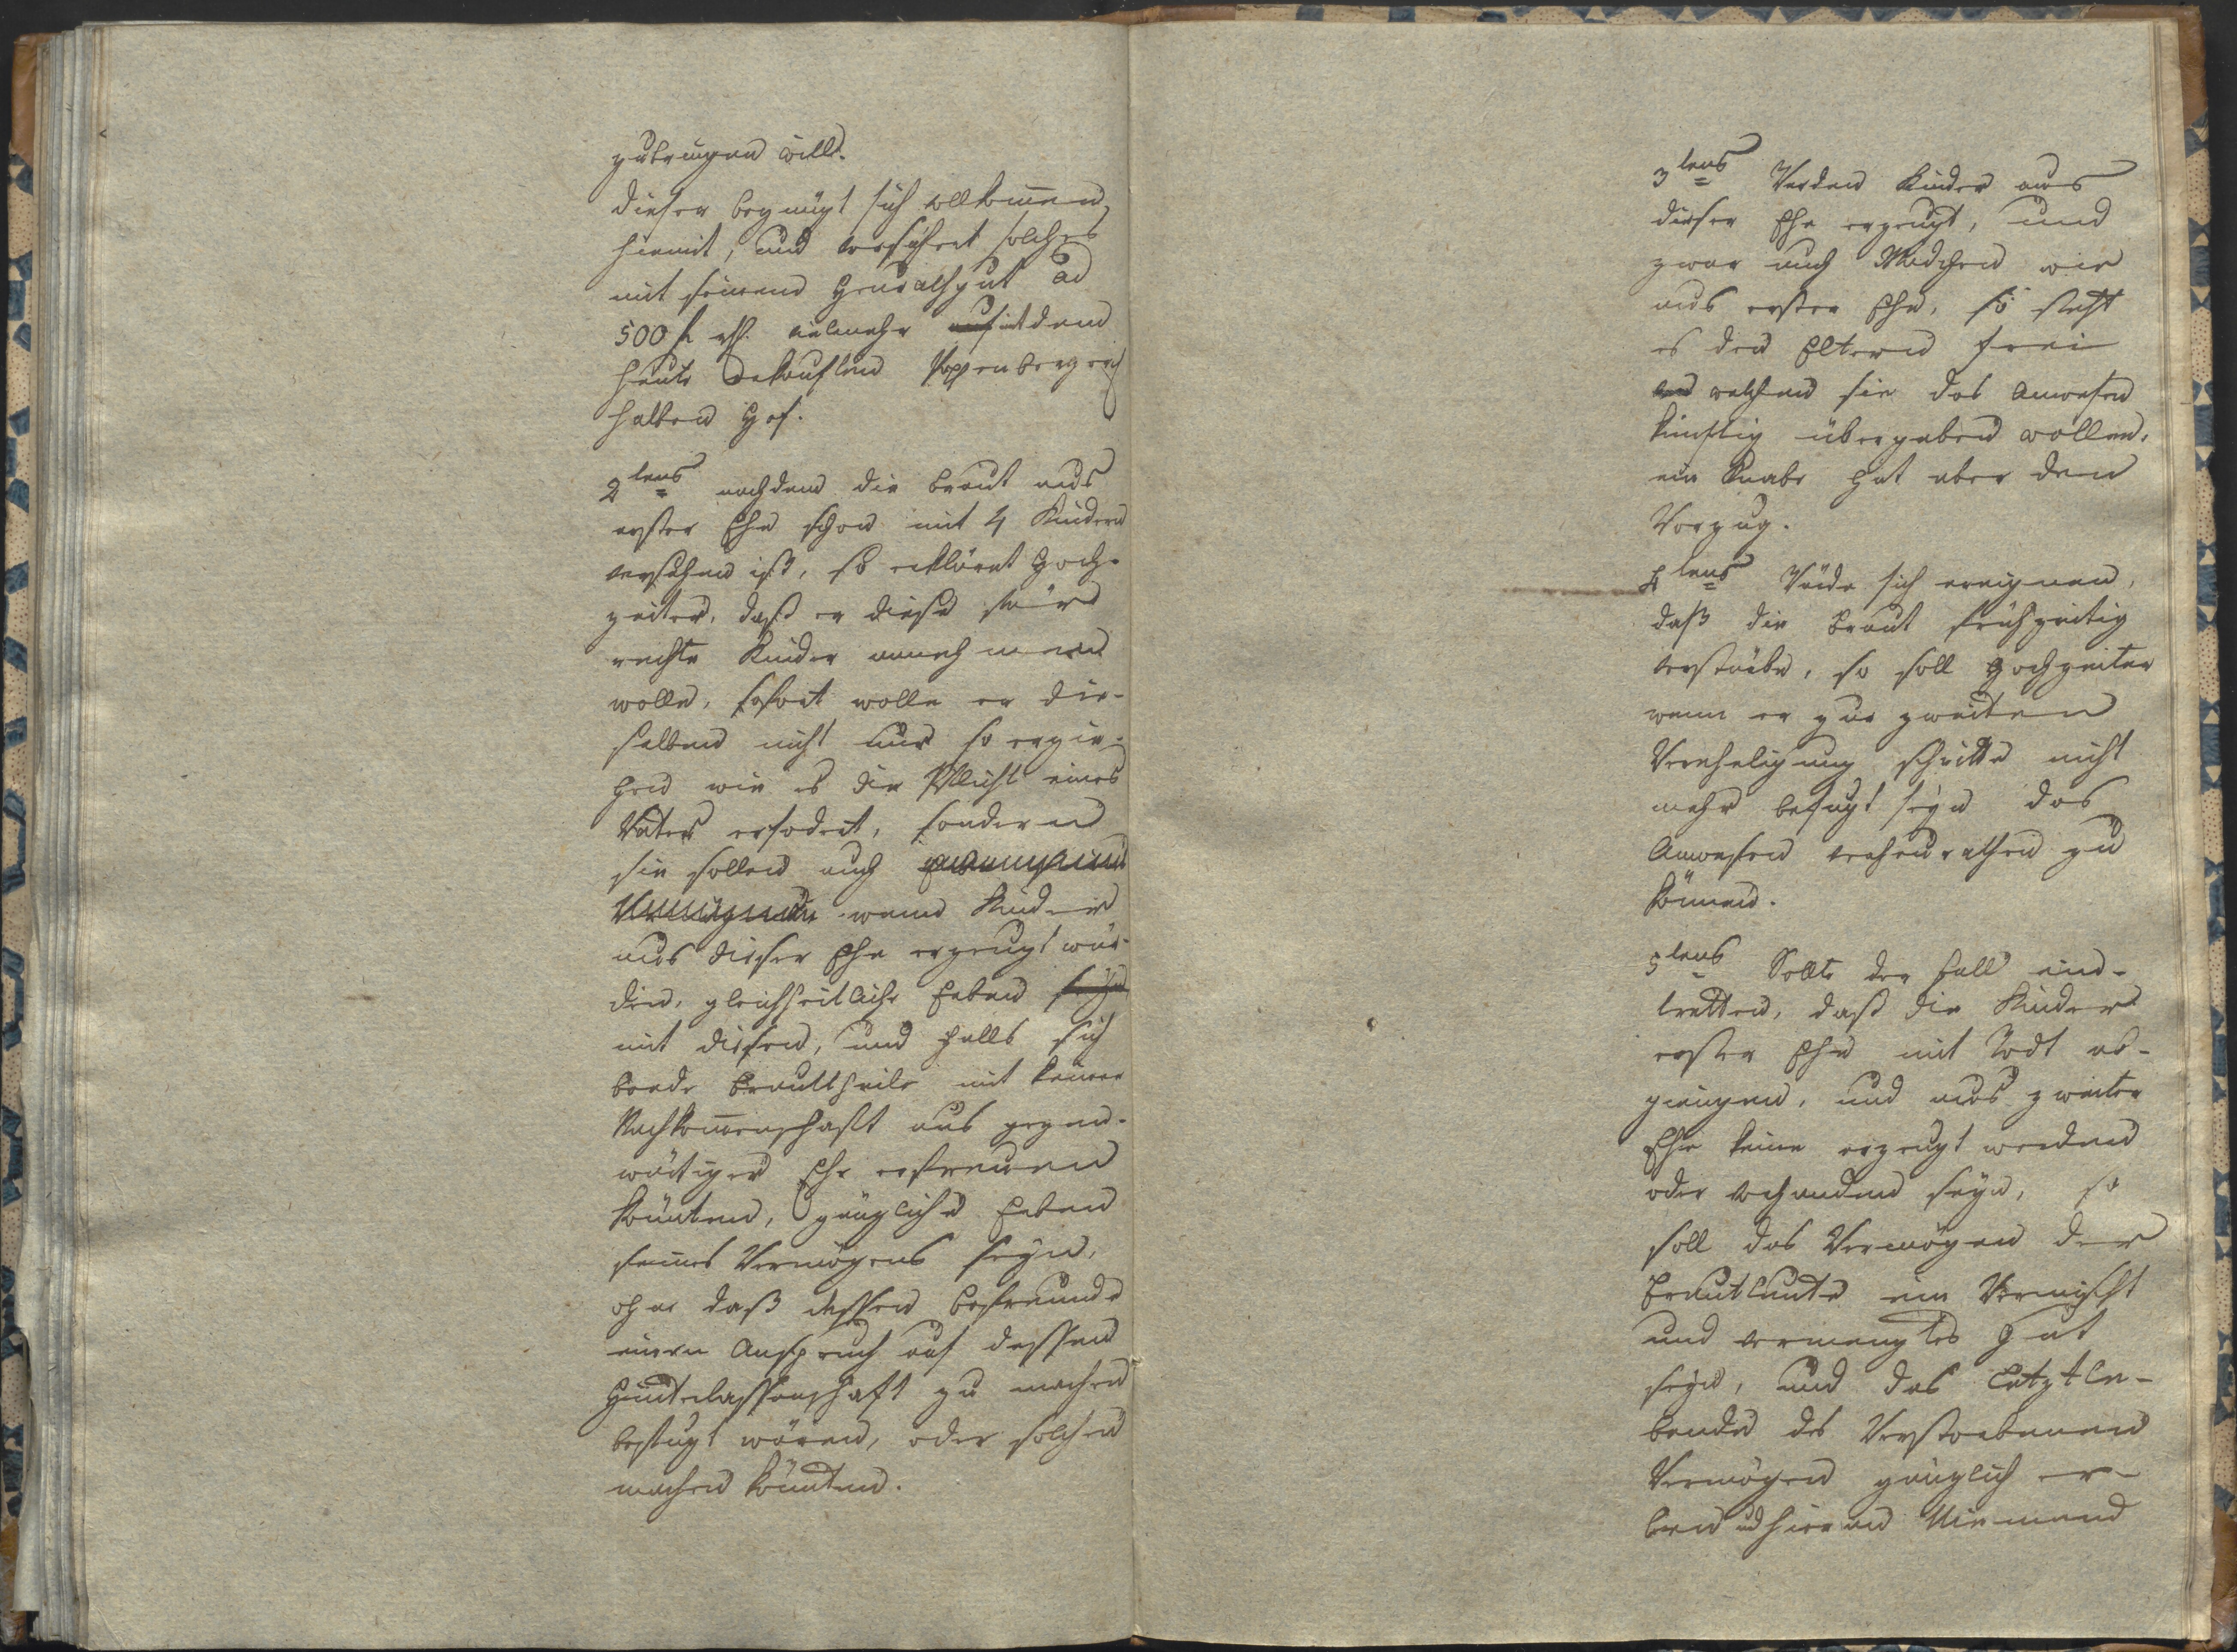 zubringen will.
dieser begnügt sich vollkom̅en
hiemit, und versichert solches
mit seinem Heurathgut ad
500 f rh. vielmehr mit dem
heute erkauften
halben Hof.
2tens nachdem die Braut aus
erster Ehe schon mit 4 Kindern
versehen ist, so erkläret Hoch-
zeiter, daß er diese für
rechte Kinder annehmen
wolle, sofort wolle er die-
selben nicht nur so erzie-
hen wie es die Pflicht eines
Vaters erfodert, sondern
sie sollen auch
wenn Kinder
aus dieser Ehe erzeugt wür-
den, gleichheitliche Erben seyn
mit diesen, und falls sich
beede Brauttheile mit keiner
Nachkom̅enschaft aus gegen-
wärtiger Ehe erfreuen
könnten, gänzliche Erben
seines Vermögens seyn,
ohne daß dessen Befreunde
einen Anspruch auf dessen
Hinterlassenschaft zu machen
befugt wären, oder solchen
machen könnten.
3tens Werden Kinder aus
dieser Ehe erzeugt, und
zwar auch Mädchen wie
aus erster Ehe, so steht
es den Eltern frei
welchem sie das Anwesen
künftig übergeben wollen,
ein Knabe hat aber den
Vorzug.
4tens Würde sich ereignen,
daß die Braut frühzeitig
verstürbe, so soll Hochzeiter
wenn er zur zweiten
Verehelichung schritte nicht
mehr befugt seyn das
Anwesen verheurathen zu
können.
5tens Sollte der Fall ein-
tretten, daß die Kinder
erster Ehe mit Todt ab-
giengen, und aus zweiter
Ehe keine erzeugt werden
oder vorhanden seyn, so
soll das Vermögen der
Brautleute ein Vermischt
und vermengtes Gut
seyn, und das Letztle-
bende des Verstorbenen
Vermögen gänzlich er-
ben und hieran Niemand